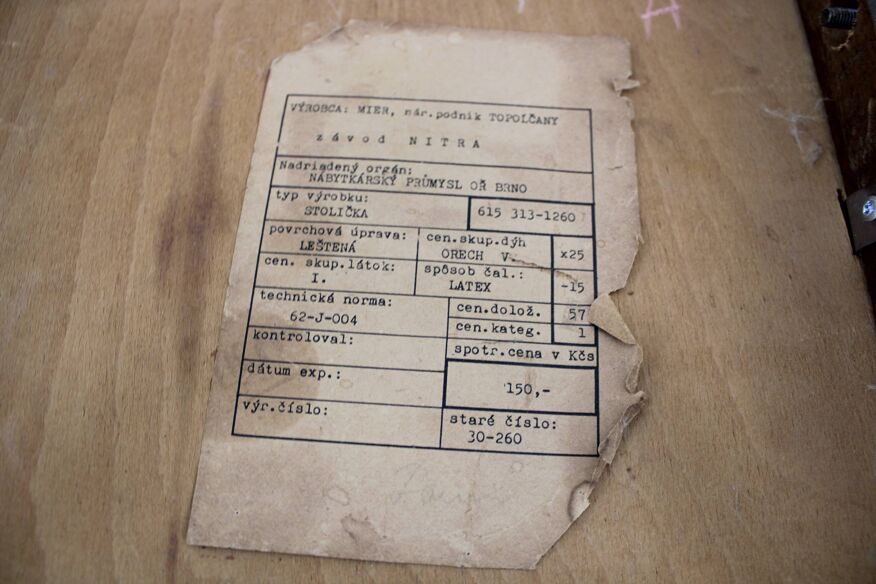 VÝROBCA: MIER, nár.podnik TOPOĽČANY
závod NITRA
Nadriadený orgán:
NÁBYTKÁRSKÝ PRŮMYSL OŘ BRNO
typ výrobku:
STOLIČKA
615 313-1260
povrchová úprava:
LEŠTENÁ
cen.skup.dýh
ORECH V.
x25
cen. skup.látok:
I.
spôsob čal.:
LATEX
-15
technická norma:
62-J-004
cen.dolož.
57
cen.kateg.
1
kontroloval:
spotr.cena v Kčs
dátum exp.:
150,-
výr.číslo:
staré číslo:
30-260
A